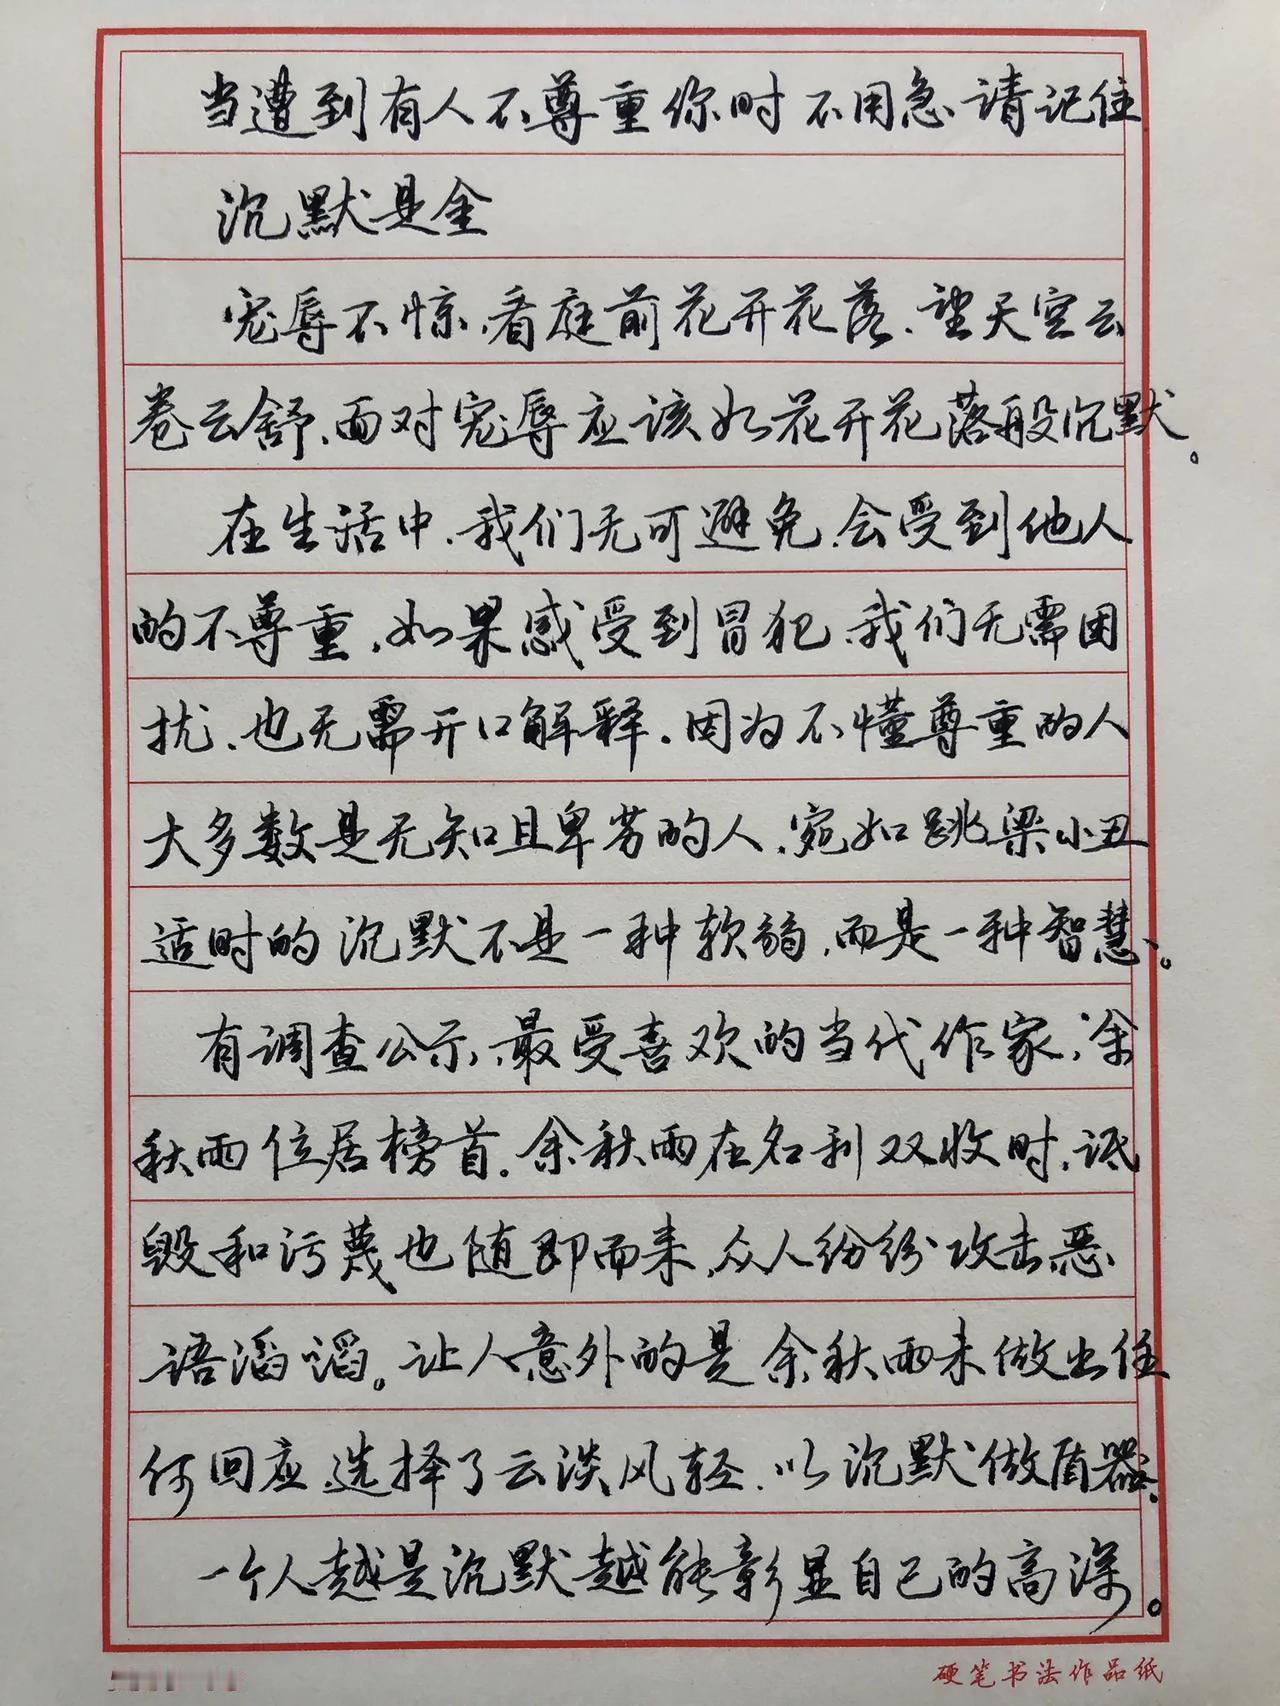 当遭到有人不尊重你时不用急请记住
沉默是金
宠辱不惊,看庭前花开花落,望天空云
卷云舒,面对宠辱应该如花开花落般沉默。
在生活中,我们无可避免,会受到他人
的不尊重,如果感受到冒犯,我们无需困
扰,也无需开口解释。因为不懂尊重的人
大多数是无知且卑劣的人,宛如跳梁小丑
适时的沉默不是一种软弱,而是一种智慧。
有调查公示,最受喜欢的当代作家,余
秋雨位居榜首。余秋雨在名利双收时,诋
毁和污蔑也随即而来,众人纷纷攻击恶
语滔滔。让人意外的是余秋雨未做出任
何回应,选择了云淡风轻,以沉默做盾器。
一个人越是沉默越能彰显自己的高深。
硬笔书法作品纸